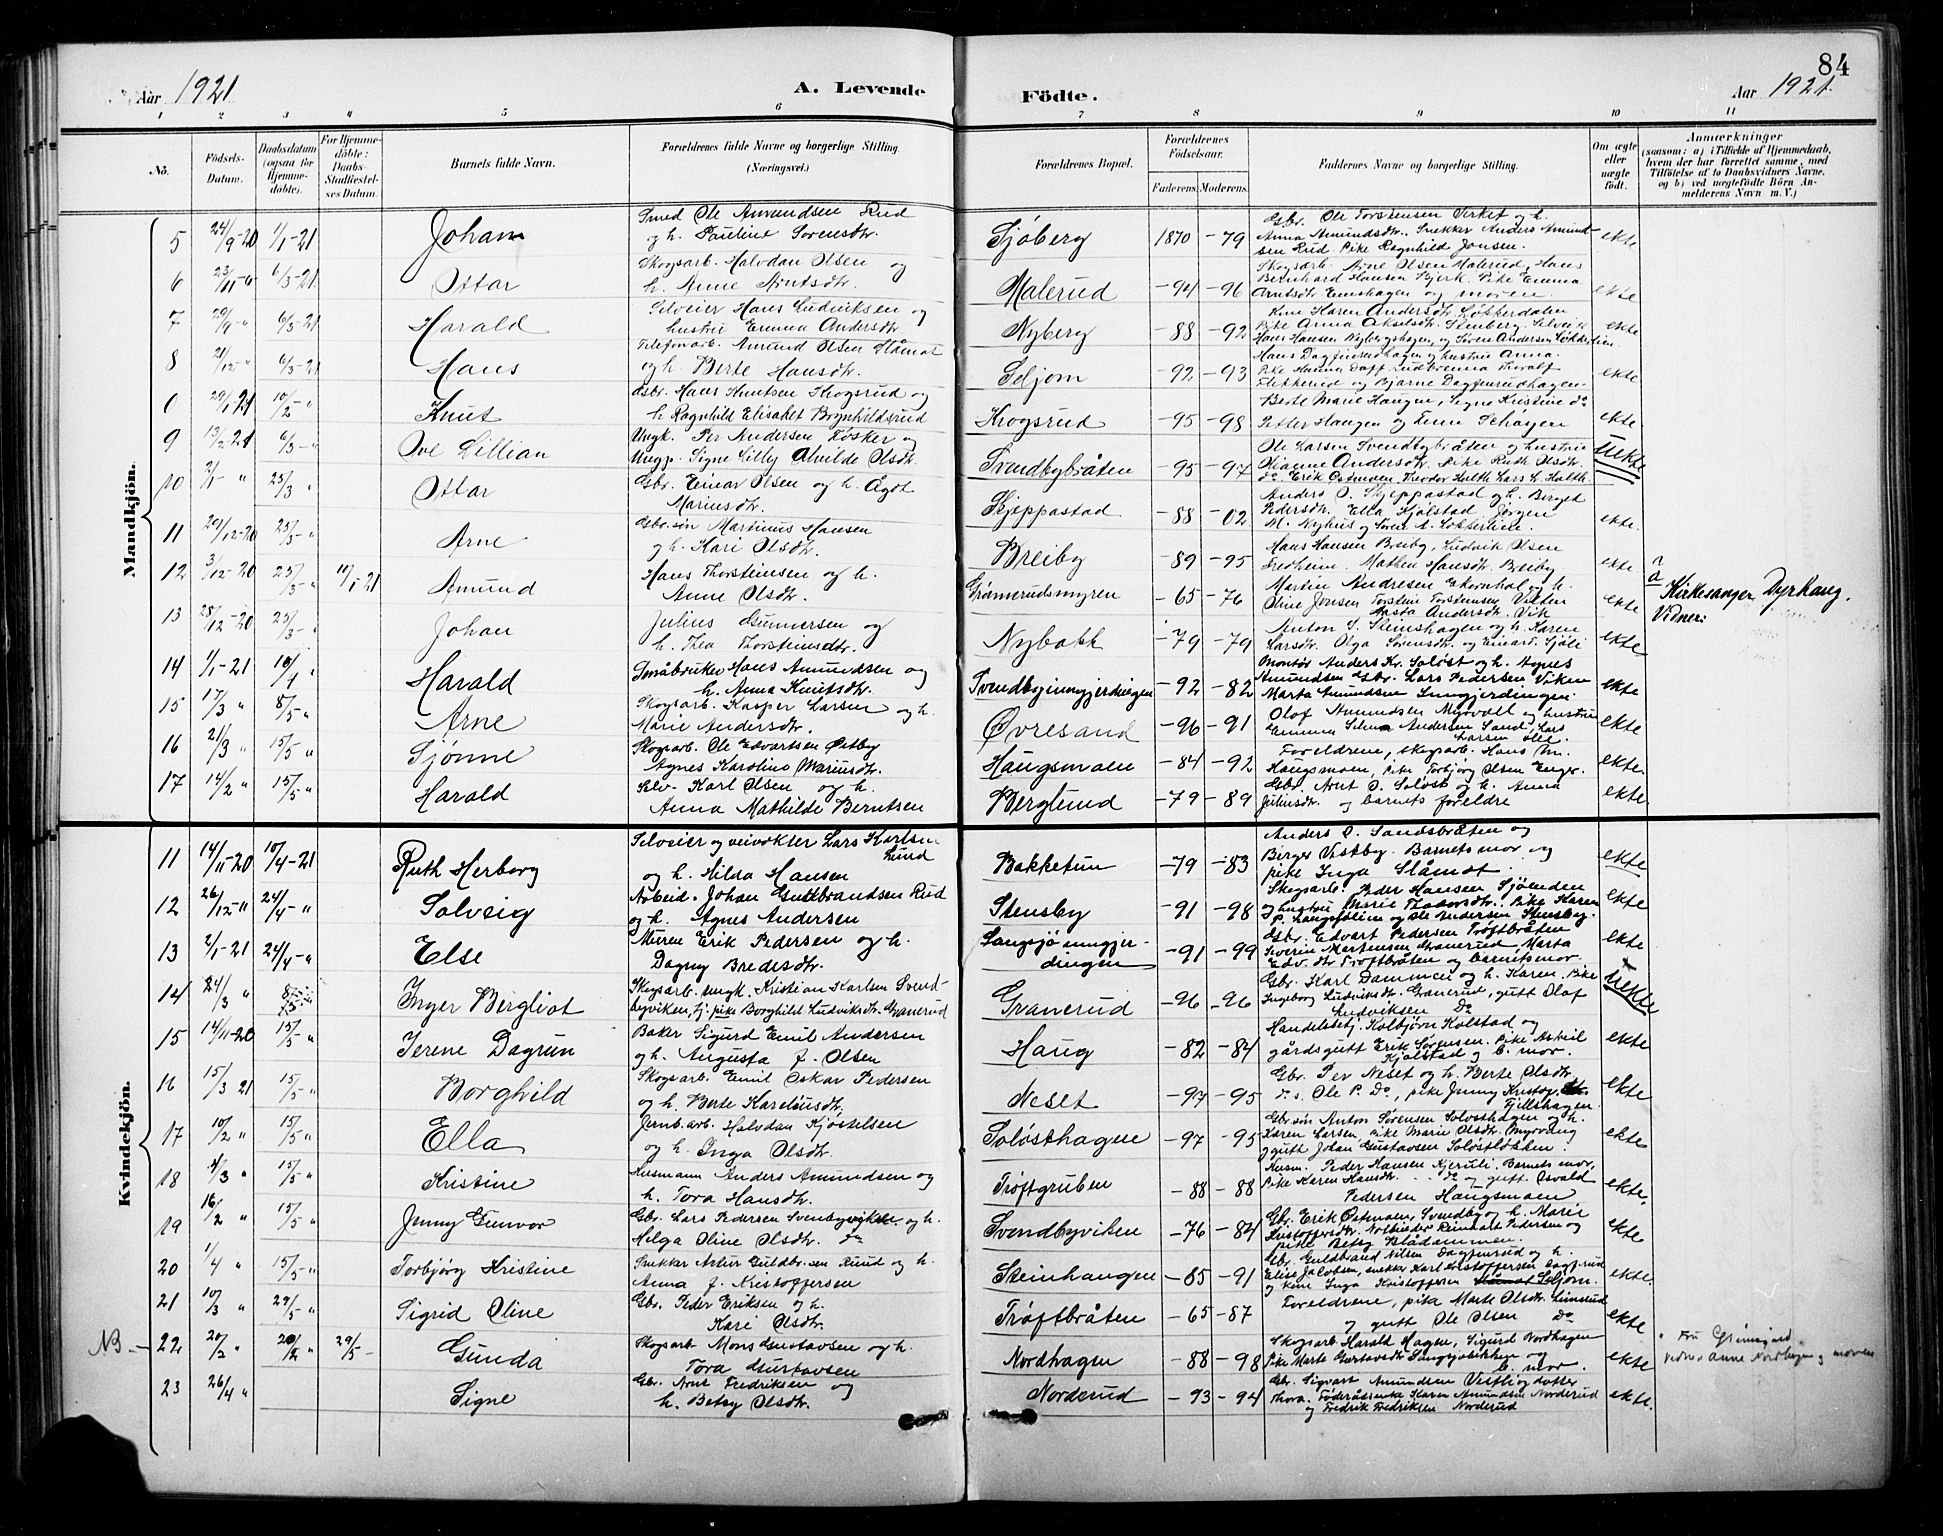 84
Aar 1921
A. Levende
Födte.
Aar 1921.
1 2 3 4 5 6 7 8 9 10 11
No.
Födsels-Datum.
Daabsdatum (ogsaa for Hjemme-döbte).
For Hjemme-döbte: Daabs-Stadfæstel-ses Datum.
Barnets fulde Navn.
Forældrenes fulde Navne og borgerlige Stilling. (Næringsvei.)
Forældrenes Bopæl.
Forældrenes Födselsaar.
Faderens. Moderens.
Faddernes Navne og borgerlige Stilling.
Om ægte eller uægte födt.
Anmærkninger
(saasom: a) i Tilfælde af Hjemmedaab, hvem der har forrettet samme, med Tilföielse af to Daabsvidners Navne, og b) ved uægtefödte Börn An-melderens Navn m. V.)
Mandkjön.
5 24/9-20 1/1-21 Johan Smed Ole Amundsen Rud
og h. Pauline Sorensdtr. Sjøberg 1870 -79 Gbr. Ole Torstensen Virket og h.
Anna Amundsdtr. Snekker Anders Amund-
sen Rud. Pike Ragnhild Jonsen. ekte
6 6/3-21 Ottar Skogsarb. Halvdan Olsen og
h. Anne Arntsdtr. Malerud -94 -96 Skogsarb. Arne Olsen Malerud, Hans
Bernhard Hansen Bjerk. Pike Emma
og moren ekte
7 29/9-" 6/3-21 Harald Selveier Hans Ludviksen og
hustru Emma Andersdtr. Nyberg -88 -92 Kone Karen Andersdtr. Løkkerdalen
Pike Anna Akselsdtr. Stenberg, Selveier
Hans Hansen Nybergshagen og Søren Andersen ekte
8 21/12-" 6/3-21 Hans Telefonarb. Amund Olsen Slåmot
og h. Berte Hansdtr. Seljom -92 -93 Hans Dagfinrudhagen og hustru Anna.
og Bjarne Dagfinrudhagen. ekte
29/1-21 10/2-" Knut Gbr. Hans Knutsen Krogsrud og
h. Ragnhild Elisabet Brynhildsrud Krogsrud -95 -98 Berte Marie Haugen, Signe Kristine do
Petter Haugen og ekte
9 13/2-21 6/3-" Ove Lillian Ungk. Per Andersen Røsker og
Ungp. Signe Lilly Alvilde Olsdtr. Svendbybråten -95 -97 Ole Larsen Svendbybråten og hustru
Olianne Andersdtr. Pike Ruth Olsdtr.
do Erik Ostmoen Teodor Holth Lars L. Holth uekte
10 25/3 " Ottar Gbr. Einar Olsen og h. Agot
Mariusdtr. Skjeppastad -88 -02 Anders O. Skjeppastad og h. Birgit
Pedersdtr. Ella Kjølstad. Jørgen
M. Nyhus og Søren A. ekte.
11 29/12-20 25/3-" Arne Gbr.søn Martinus Hansen
og h. Kari Olsdtr. Breiby -89 -95 Hans Hansen Breiby, Ludvik Olsen
Fredheim. Mathea Hansdtr. Breiby ekte
12 3/12-20 25/3 " 10/1-21 Amund Hans Thorsteinsen og h.
Anne Olsdtr. Grønnerudsmyren -65 -76 Martin Andresen Ekornhol og h.
Oline Jonsen Torstein Torsteinsen Viken
Marta Andersdtr. Vik ekte Kirkesanger Dyrhaug.
Vidner:
13 28/12-20 25/3-" Johan Julius Gunnersen og
h. Thea Thorsteinsdtr. Nybakk -79 -79 Anton S. Steinshagen og h. Karen
Larsdtr. Olga Sørensdtr. og Einar Sjøli ekte
14 1/1-21 10/4 " Harald Småbruker Hans Amundsen og
h. Anna Knutsdtr. Svendbyinngjerdingen -92 -82 Montør Anders Kr. Soløst og h. Agnes
Amundsen Gbr. Lars Pedersen Viken
Marta Amundsen Inngjerdingen. ekte
15 17/3 " 8/5-" Arne Skogsarb. Kasper Larsen og h.
Marie Andersdtr. Øvresand -96 -91 Olof Amundsen Myrvold og hustru
Emma Andersen Sand, Lars
Larsen ekte
16 21/3 " 15/5 " Sjønne Skogsarb. Ole Edvartsen Østby
Agnes Karoline Mariusdtr. Haugsmoen -84 -92 Foreldrene, skogsarb. Hans M.
Haugsmoen, pike Torbjørg Olsen Enger. ekte.
17 14/2 " 15/5 " Harald Selv. Karl Olsen og h.
Anna Mathilde Berntsen Berglund -79 -89 Gbr. Arnt O. Soløst og h. Anna
Juliusdtr. og barnets foreldre ekte
Kvindekjön.
11 14/11-20 10/4-21 Ruth Herborg Selveier og veivokter Lars Karlsen
Lund
og h. Hilda Hansen Bakketun -79 -83 Anders O. Sandsbråten og
Birger Vestby. Barnets mor og
pike Inga Slåmot. ekte
12 26/12-" 24/4-" Solveig Arbeid. Johan Guttbrandsen Rud
og h. Agnes Andersen Stensby -91 -98 Skogsarb. Peder Hansen Sjøenden
og hustru Marie Thodorsdtr. Pike Karen
P. Langsjølien og Ole Andersen Stensby. ekte
13 2/1-21 24/4-" Else Murer Erik Pedersen og h.
Dagny Bredesdtr. Langsjøinngjer-
dingen -91 -99 Gbr. Edvart Pedersen Trøftbråten
Severin Mortensen Granerud, Marta
Edv.dtr Trøftbråten og barnets mor. ekte
14 24/3 " Inger Bergliot Skogsarb. ungk. Kristian Karlsen Svend-
byviken, tj. pike Borghild Ludviksdtr. Granerud Granerud -96 -96 Gbr. Karl Dammen og h. Karen. Pike
Ingeborg Ludviksdtr. Granerud, gutt Olaf
Ludviksen Do uekte
15 14/11-20 15/5-" Irene Dagrun Baker Sigurd Emil Andersen
og h. Augusta J. Olsen Haug -82 -84 Handelsbetj. Kolbjørn Kolstad og
gårdsgutt Erik Sørensen. Pike Astrid
Kjølstad og b. mor. ekte
16 15/3 21 15/5 " Borghild Skogsarb. Emil Oskar Pedersen
og h. Berte Kareliusdtr. Neset -97 -95 Gbr. Per Neset og h. Berte Olsdtr.
d.s. Ole P. Do, pike Jenny Kristof.
Fjellshagen. ekte
17 10/2 " 15/5 " Ella Jernb.arb. Halvdan Kjøstelsen
og h. Inga Olsdtr. Soløsthagen -97 -95 Gbr.søn Anton Sørensen Soløsthagen og h.
Karen Larsen pike Marie Olsdtr. Myrvang
og gutt Johan Gustavsen Soløst ekte
18 4/3 " 15/5 " Kristine Husmann Anders Amundsen og
h. Tora Hansdtr. Trøftgruben -88 -88 Husm. Peder Hansen Kjeruli. Barnets mor,
Pike Karen Hansdtr. do og gutt Osvald
Pedersen Haugsmoen ekte.
19 16/2 " 15/5 " Jenny Gunvor Gbr. Lars Pedersen Svenbyviken og h.
Helga Oline Olsdtr. do Svendbyviken -76 -84 Gbr. Erik Østmoen, Svendby og h. Marie
Kristoffersdtr. Reinhart Pedersen og
pike Betsy Blådammen. ekte
20 1/4 " 15/5 " Torbjørg Kristine Snekker Artur Guldbr.sen Ruud og h.
Anna J. Kristoffersen Steinhaugen -85 -91 Gbr. Guldbrand Nilsen Dagfinrud og h.
Elise Jacobsen, snekker Karl Kristoffersen Dagf.rud
og kone Inga Kristoffersen Seljom. ekte.
21 10/3 " 29/5 " Sigrid Oline Gbr. Peder Eriksen og h.
Kari Olsdtr. Trøftbråten -65 -87 Foreldrene, pike Marte Olsdtr.
og gutt Ole Olsen Do ekte
NB. 22 20/2 " 20/2 " 29/5 - Gunda Skogsarb Mons Gustavsen og h.
Tora Gustavsen Nordhagen -88 -98 Skogsarb Harald Hagen, Sigurd Nordhagen
Pike Marte Gustavsdtr og
b. mor. ekte Fru Grimsgård
vidner Anne Nordhagen og moren
23 26/4 " Signe Gbr. Arnt Fredriksen og
h. Betsy Olsdtr. Norderud -93 -94 Gbr. Sigvart Amundsen Vestli og datter
Thora. Føderådsenke Karen Amundsen Norderud
og Fredrik Fredriksen Norderud ekte.